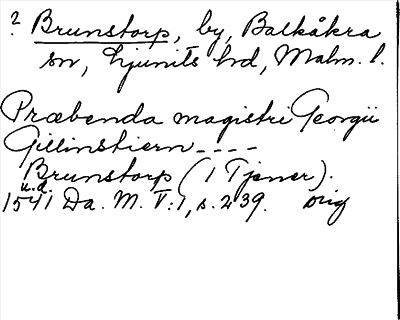 ? Brunstorp, by, Balkåkra
sn, Ljunits hd, Malm. l.
Præbenda magistri Georgii
Gillinstiern ----
Brunstorp (1 Tjener).
u.d.
1541 Da. M. V:1, s. 239. orig